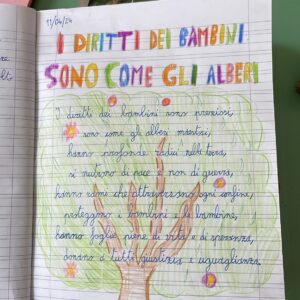 11/04/24
I DIRITTI DEI BAMBINI
SONO COME GLI ALBERI
I diritti dei bambini sono preziosi,
sono come gli alberi maestosi,
hanno profonde radici nella terra,
si nutrono di pace e non di guerra,
hanno rami che attraversano ogni confine,
proteggono i bambini e le bambine,
hanno foglie piene di vita e di speranza,
donano a tutti giustizia e uguaglianza.